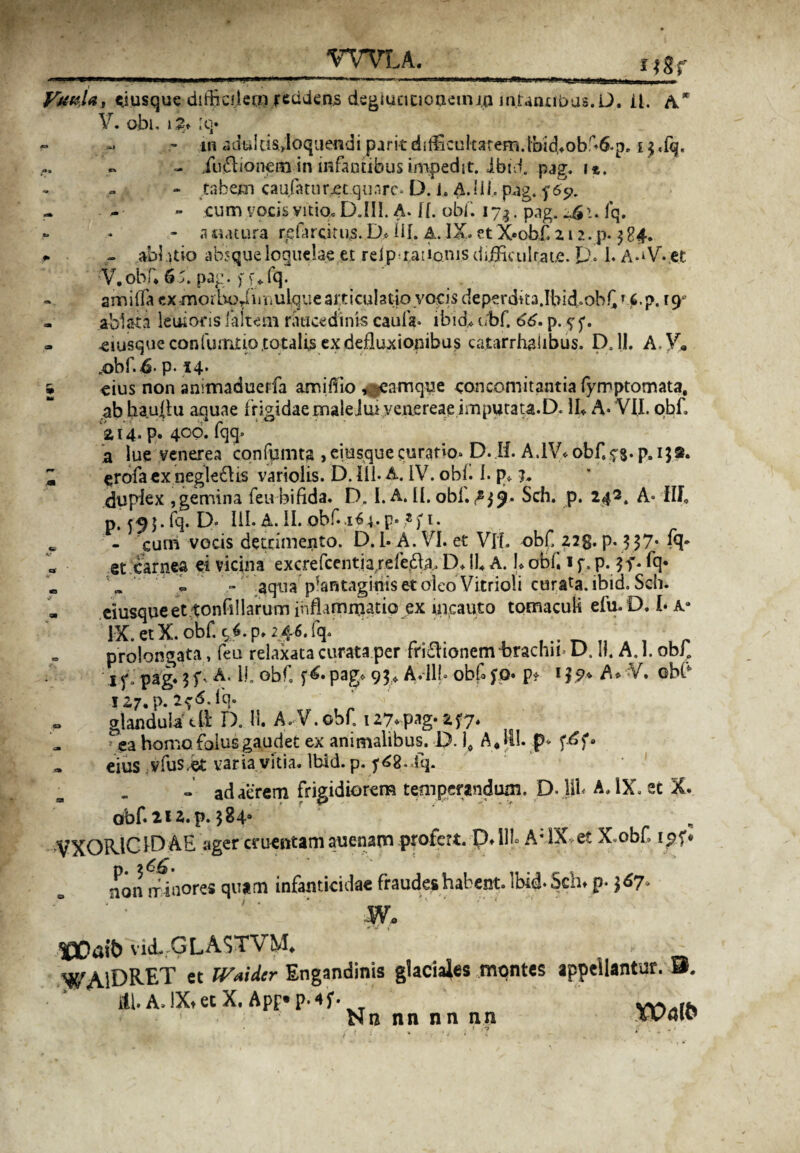 VVVLA. 1385
Vuula, eiusque difficilem reddens deglutitionem in infantibus. D. II. A.
V. obs. 12. sq.
- - - in adultis, loquendi parit difficultatem. Ibid. obs. 6. p. 13. sq.
- - - suctionem in infantibus impedit. Ibid. pag. 11.
- - - tabem causatur et quare. D. I. A. III. pag. 569.
- - - cum vocis vitio. D. III. A. II. obs. 173. pag. 261. sq.
- - - a natura resarcitus. D. III. A. IX. et X. obs. 212. p. 384.
- ablatio absque loquelae et respirationis difficultate. D. I. A. IV. et
V. obs. 65. pag. 55. sq.
- amissa ex morbo, simulque articulatio vocis deperdita. Ibid. obs. 16. p. 19.
- ablata leuioris saltem raucedinis causa. ibid. obs. 66. p. 55.
- eiusque consumtio totalis ex defluxionibus catarrhalibus. D. II. A. V.
obs. 6. p. 14.
- eius non animaduersa amissio, eamque concomitantia symptomata,
ab haustu aquae frigidae male lui venereae imputata. D. II. A. VII. obs.
214. p. 400. sqq.
- a lue venerea consumta, eiusque curatio. D. II. A. IV. obs. 58. p. 132.
- erosa ex neglectis variolis. D. III. A. IV. obs. I. p. 3.
- duplex, gemina seu bifida. D. I. A. II. obs. 239. Sch. p. 242. A. III.
p. 593. sq. D. III. A. II. obs. 164. p. 251.
- - cum vocis detrimento. D. I. A. VI. et VII. obs. 228. p. 337. sq.
- et carnea ei vicina excrescentia resecta. D. II. A. I. obs. 15. p. 35. sq.
- - - - aqua plantaginis et oleo Vitrioli curata. ibid. Sch.
- eiusque et tonsillarum inflammatio ex incauto tomaculi esu. D. I. A.
IX. et X. obs. 56. p. 246. sq.
- prolongata, seu relaxata curata per frictionem brachii. D. II. A. I. obs.
15. pag. 35. A. II. obs. 56. pag. 93. A. III. obs. 50. p. 139. A. V. obs.
127. p. 256. sq.
- glandula est D. II. A. V. obs. 127. pag. 257.
- ea homo solus gaudet ex animalibus. D. I. A. III. p. 565.
- eius vsus et varia vitia. Ibid. p. 568. sq.
- - - ad aerem frigidiorem temperandum. D. III. A. IX. et X.
obs. 212. p. 384.
VXORICIDAE ager cruentam auenam profert. D. III. A. IX. et X. obs. 195.
p. 366.
- non minores quam infanticidae fraudes habent. Ibid. Sch. p. 367.
W.
Waib vid. GLASTVM.
WAIDRET et Waider Engandinis glaciales montes appellantur. D.
III. A. IX. et X. App. p. 45.
Nn nn nn nn Waib